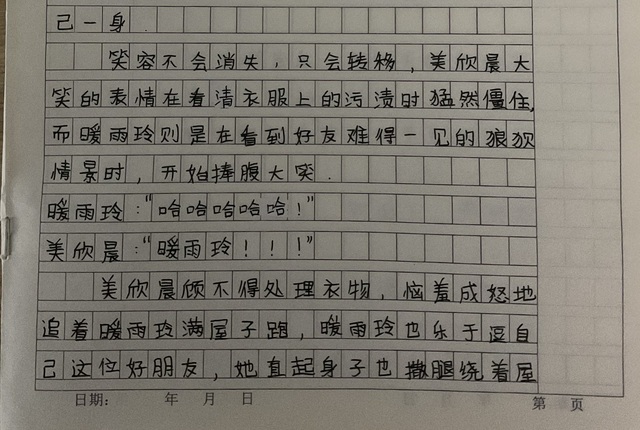 己一身.
笑容不会消失，只会转移，美欣晨大
笑的表情在看清衣服上的污渍时猛然僵住,
而暖雨玲则是在看到好友难得一见的狼狈
情景时，开始捧腹大笑.
暖雨玲："哈哈哈哈哈！"
美欣晨："暖雨玲！！！"
美欣晨顾不得处理衣物，恼羞成怒地
追着暖雨玲满屋子跑，暖雨玲也乐于逗自
己这位好朋友，她直起身子也撒腿绕着屋
日期： 年 月 日
第 页